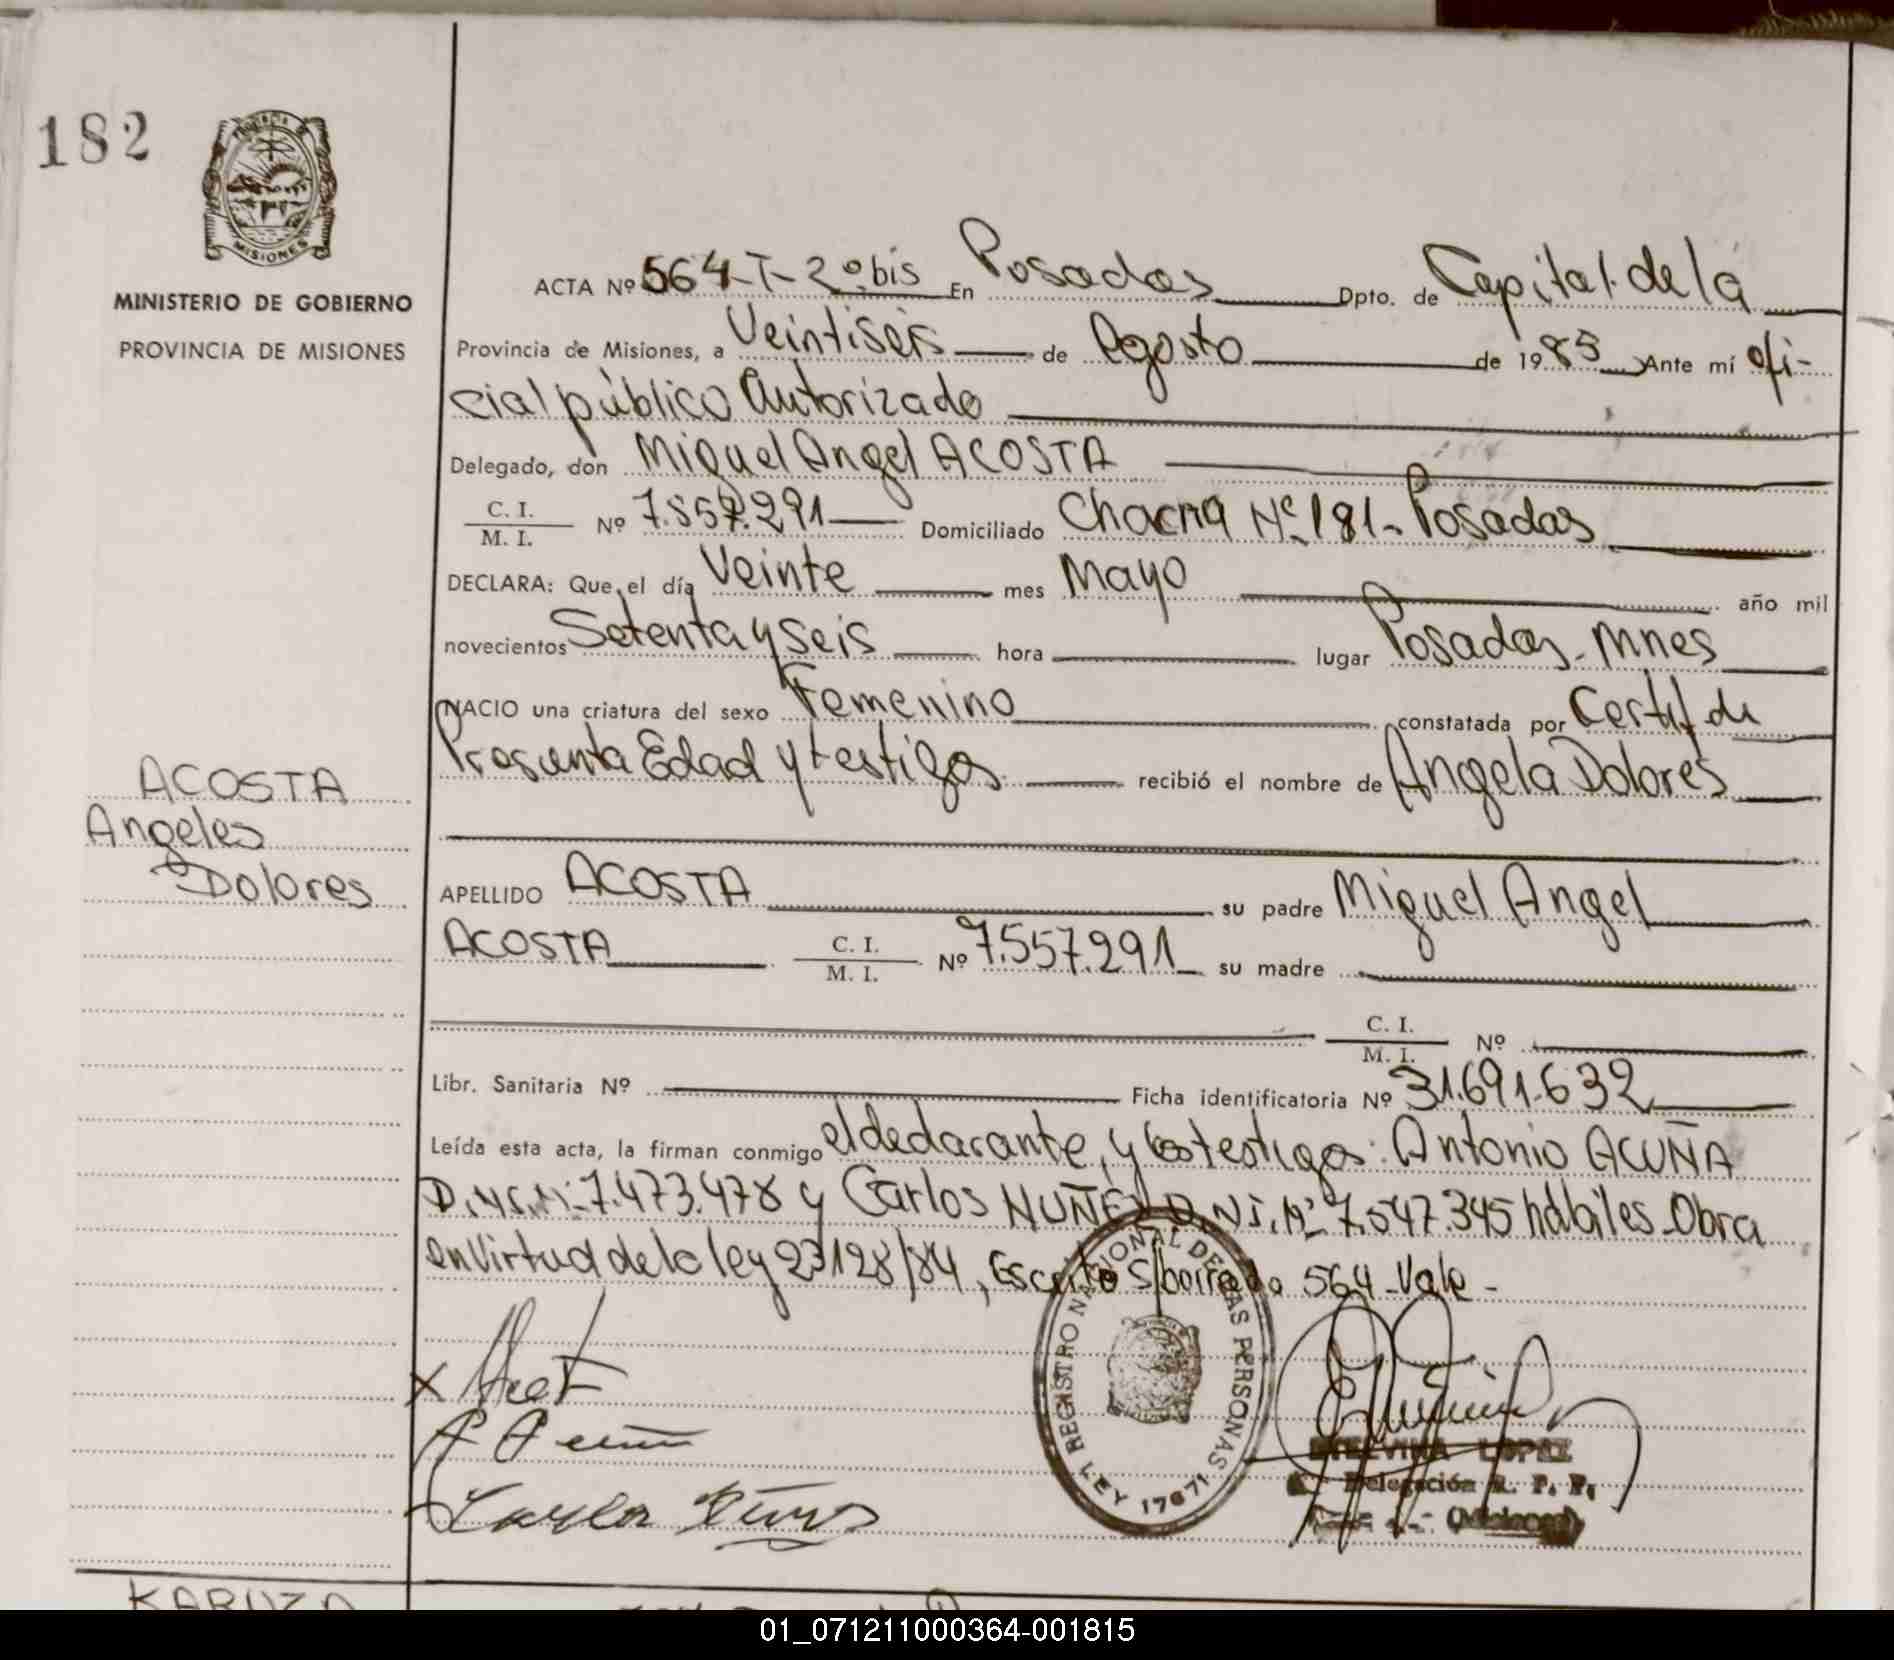 182
MISIONES
MINISTERIO DE GOBIERNO
PROVINCIA DE MISIONES
ACTA Nº 564-T-2º bis En Posadas Dpto. de Capital de la
Provincia de Misiones, a Veintiséis de Agosto de 1985 Ante mí ofi-
cial público Autorizado
Delegado, don Miguel Angel ACOSTA
C. I.
M. I. Nº 7.557.291 Domiciliado Chacra Nº 181- Posadas
DECLARA: Que el día Veinte mes Mayo año mil
novecientos Setenta y Seis hora lugar Posadas- Mnes
NACIO una criatura del sexo Femenino constatada por Certif de
Presunta Edad y testigos recibió el nombre de Angela Dolores
ACOSTA
Angeles
Dolores
APELLIDO ACOSTA su padre Miguel Angel
ACOSTA C. I.
M. I. Nº 7.557.291 su madre
C. I.
M. I. Nº
Libr. Sanitaria Nº Ficha identificatoria Nº 31.691.632
Leída esta acta, la firman conmigo el declarante, y los testigos: Antonio ACUÑA
D.N.I.Nº 7.473.478 y Carlos NUÑEZ D.N.I.Nº 7.547.345 hábiles-Obra
en virtud de la ley 23128/84, Escrito S/borrado 564-Vale-
REGISTRO NACIONAL DE LAS PERSONAS
LEY 17671
ETELVINA LOPEZ
Delegación R. P. P.
(Misiones)
KARUZA
01_071211000364-001815